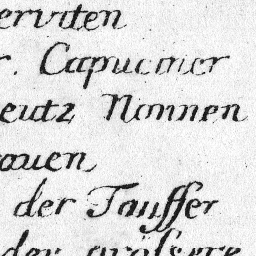 erviten
r. Capuciner
eutz Nonnen
rauen
der Tauffer
der grössere